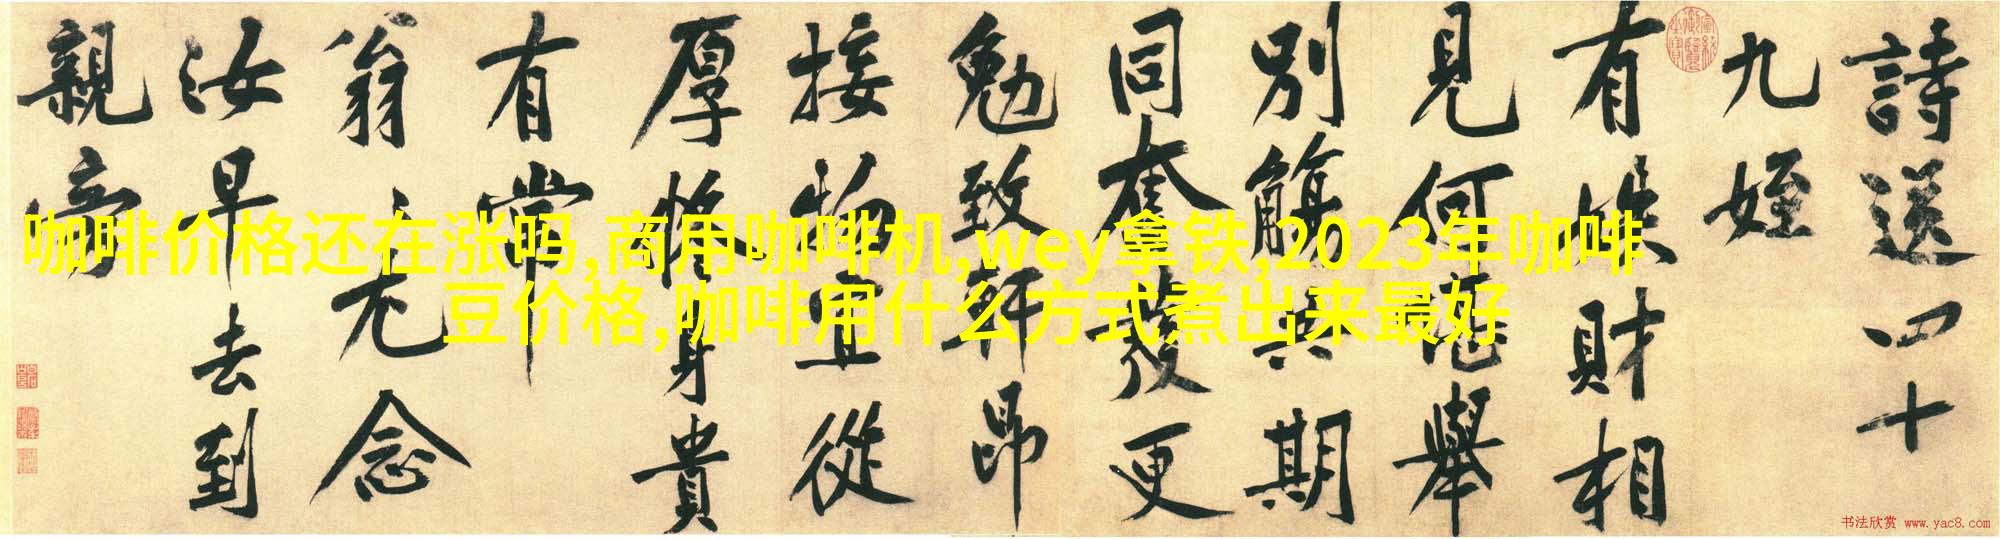 詩送四十
九姪
有財相
見何堪舉
別觴與期
同奮發更
勉致軒昂
接物宜從
厚將身貴
有常
翁〻尤念
汝早去到
親旁
咖啡价格还在涨吗,商用咖啡机,wey拿铁,2023年咖啡
豆价格,咖啡用什么方式煮出来最好
书法欣赏 www.yac8.com